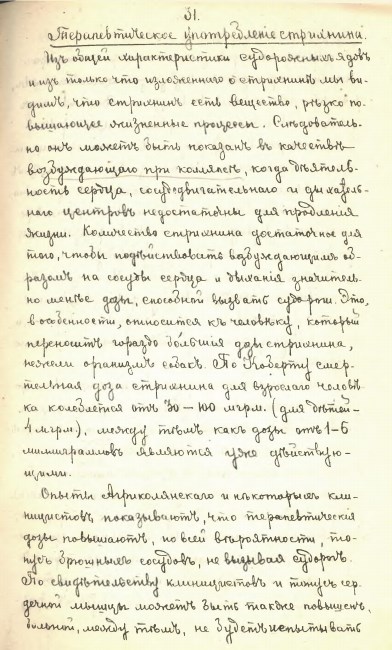 31.
Терапевтическое употребленіе стрихнина.
Изъ общей характеристики судорожныхъ ядовъ
и изъ только что изложеннаго о стрихнинѣ мы ви-
димъ, что стрихнинъ есть вещество, рѣзко по-
вышающее жизненные процессы. Слѣдователь-
но онъ можетъ быть показанъ въ качествѣ
возбуждающаго при коллапсѣ, когда дѣятель-
ность сердца, сосудодвигательнаго и дыхатель-
наго центровъ недостаточны для продленія
жизни. Количество стрихнина достаточное для
того, чтобы подѣйствовать возбуждающимъ об-
разомъ на сосуды сердца и дыханія значитель-
но менѣе дозы, способной вызвать судороги. Это,
въ особенности, относится къ человѣку, который
переноситъ гораздо бо́льшія дозы стрихнина,
нежели организмъ собакъ. По Коберту смер-
тельная доза стрихнина для взрослаго человѣ-
ка колеблется отъ 30 — 100 мгрм. (для дѣтей —
4 мгрм.), между тѣмъ какъ дозы отъ 1-6
миллиграммовъ являются уже дѣйствую-
щими.
Опыты Агриколянскаго и нѣкоторыхъ кли-
ницистовъ показываютъ, что терапевтическія
дозы повышаютъ, по всей вѣроятности, то-
нусъ брюшныхъ сосудовъ, не вызывая судорогъ.
По свидѣтельству клиницистовъ и тонусъ сер-
дечной мышцы можетъ быть также повышенъ,
больной, между тѣмъ, не будетъ испытывать